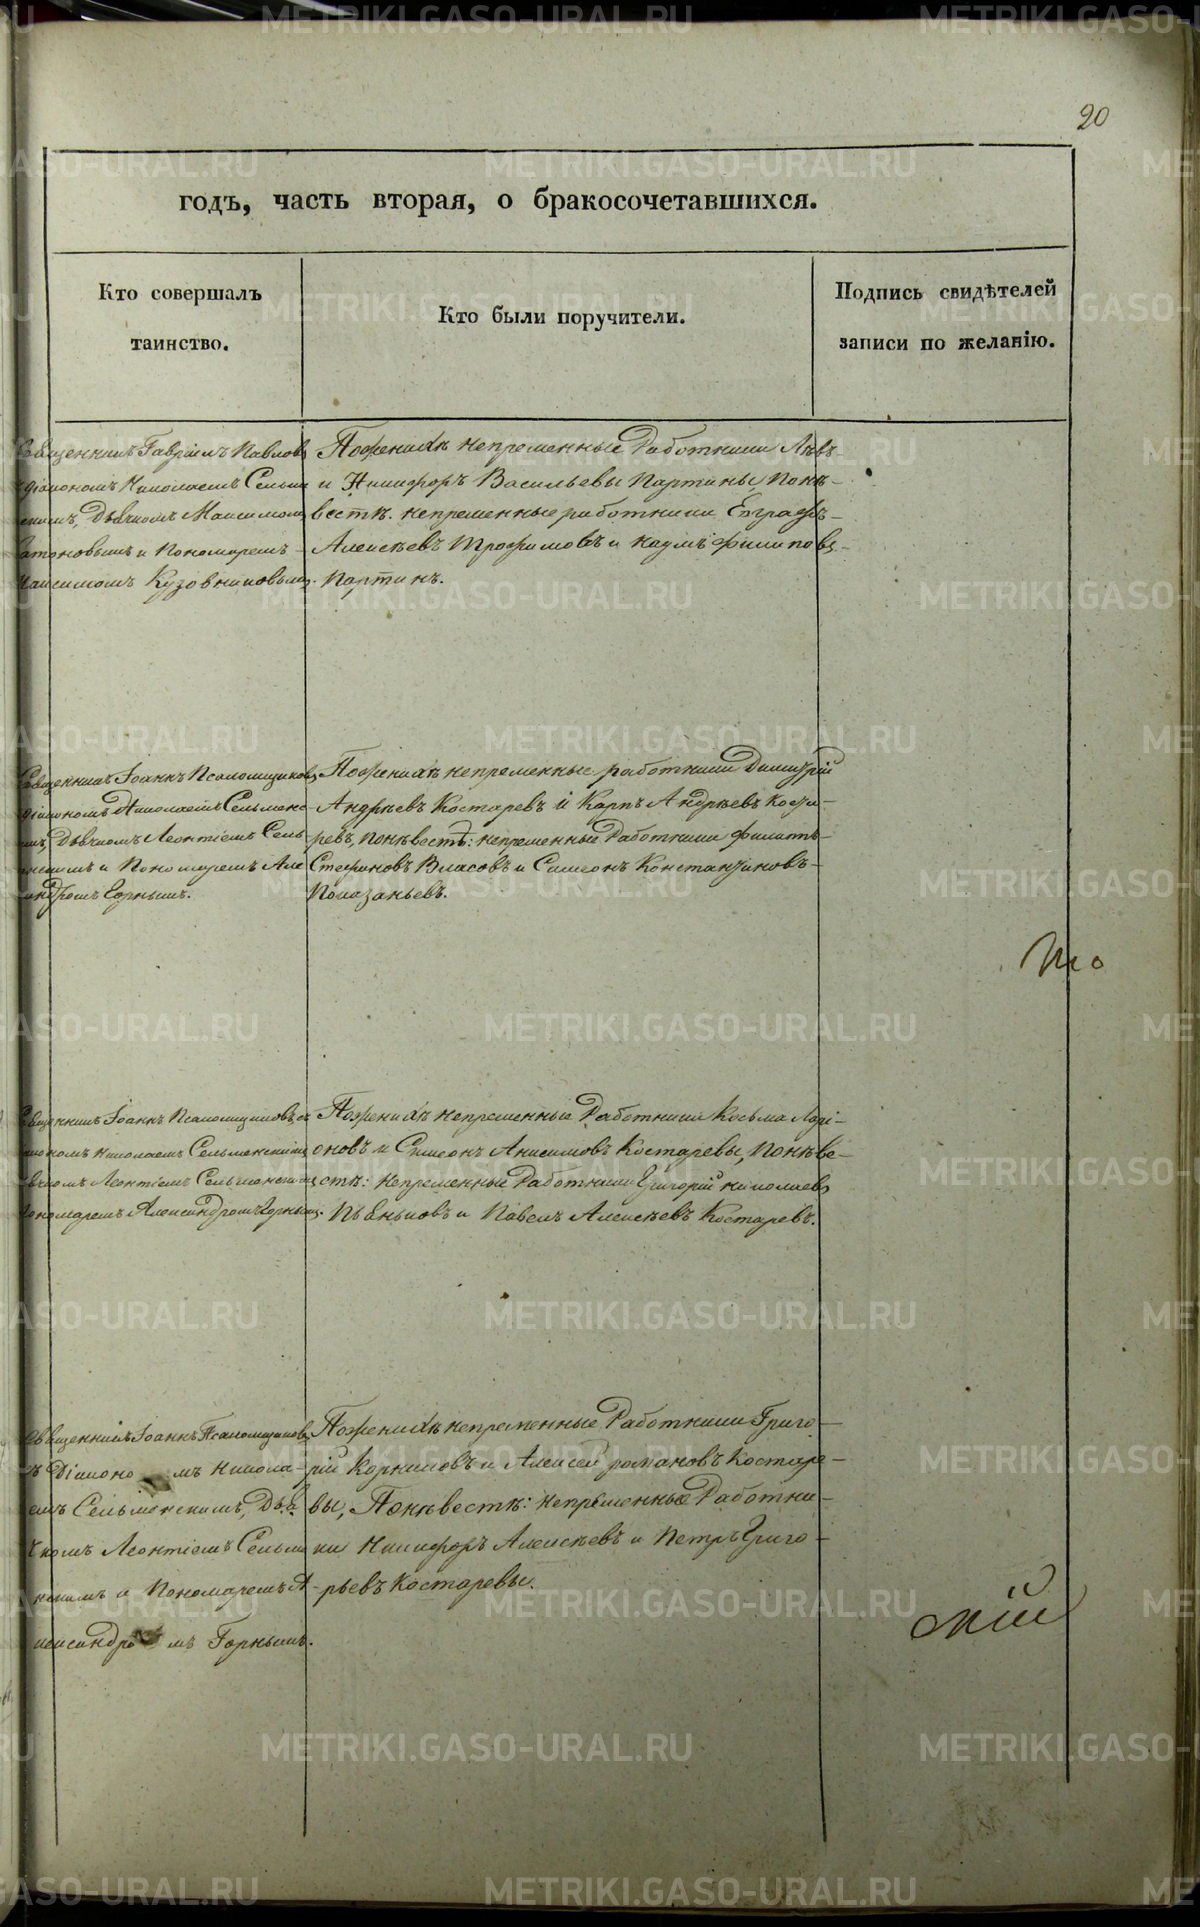 20
годъ, часть вторая, о бракосочетавшихся.
Кто совершалъ
таинство.
Кто были поручители.
Подпись свидѣтелей
записи по желанію.
Гавріилъ Павловъ
діакономъ Николаемъ Сельмен
скимъ, Дьячкомъ Максимом
и Пономаремъ
Максимомъ Кузовниковымъ.
По женихѣ непременные Работники Левъ
и Никифоръ Васильевы Партины, По не
вестѣ. непременные работники Евграфъ
Алексѣевъ Трофимовъ и Наумъ Филиповъ
Партинъ.
Священникъ Іоаннъ Псаломщиковъ
діакономъ Николаемъ Сельменс
Дьячкомъ Леонтіемъ Сель
менскимъ и Пономаремъ Але
ксандромъ Горнымъ.
По женихѣ непременные работники Димитрій
Андрѣевъ Костаревъ и Карпъ Андрѣевъ Коста
ревъ, По невестѣ: непременные Работники Филатъ
Стефановъ Власовъ и Симеонъ Константиновъ
Показаньевъ.
Священникъ Іоаннъ Псаломщиковъ съ
діакономъ Николаемъ Сельменскимъ
дьячкомъ Леонтіемъ Сельменскимъ
пономаремъ Александромъ Горнымъ.
По женихѣ непременные Работники Косьма Лари
оновъ и Симеонъ Анисимовъ Костаревы, По неве
стѣ: непременные Работники Григорій Николаевъ
Пьяньковъ и Павелъ Алексѣевъ Костаревъ.
Священникъ Іоаннъ Псаломщиковъ
съ Діаконо мъ Никола
емъ Сельменскимъ, Дья
чкомъ Леонтіемъ Сельме
нскимъ и Пономаремъ А
лександро мъ Горнымъ.
По женихѣ непременные Работники Григо
рій Корниловъ и Алексей Романовъ Костаре
вы, По невестѣ: непременные Работни
ки Никифоръ Алексѣевъ и Петръ Григо
рьевъ Костаревы.
скій
METRIKI.GASO-URAL.RU